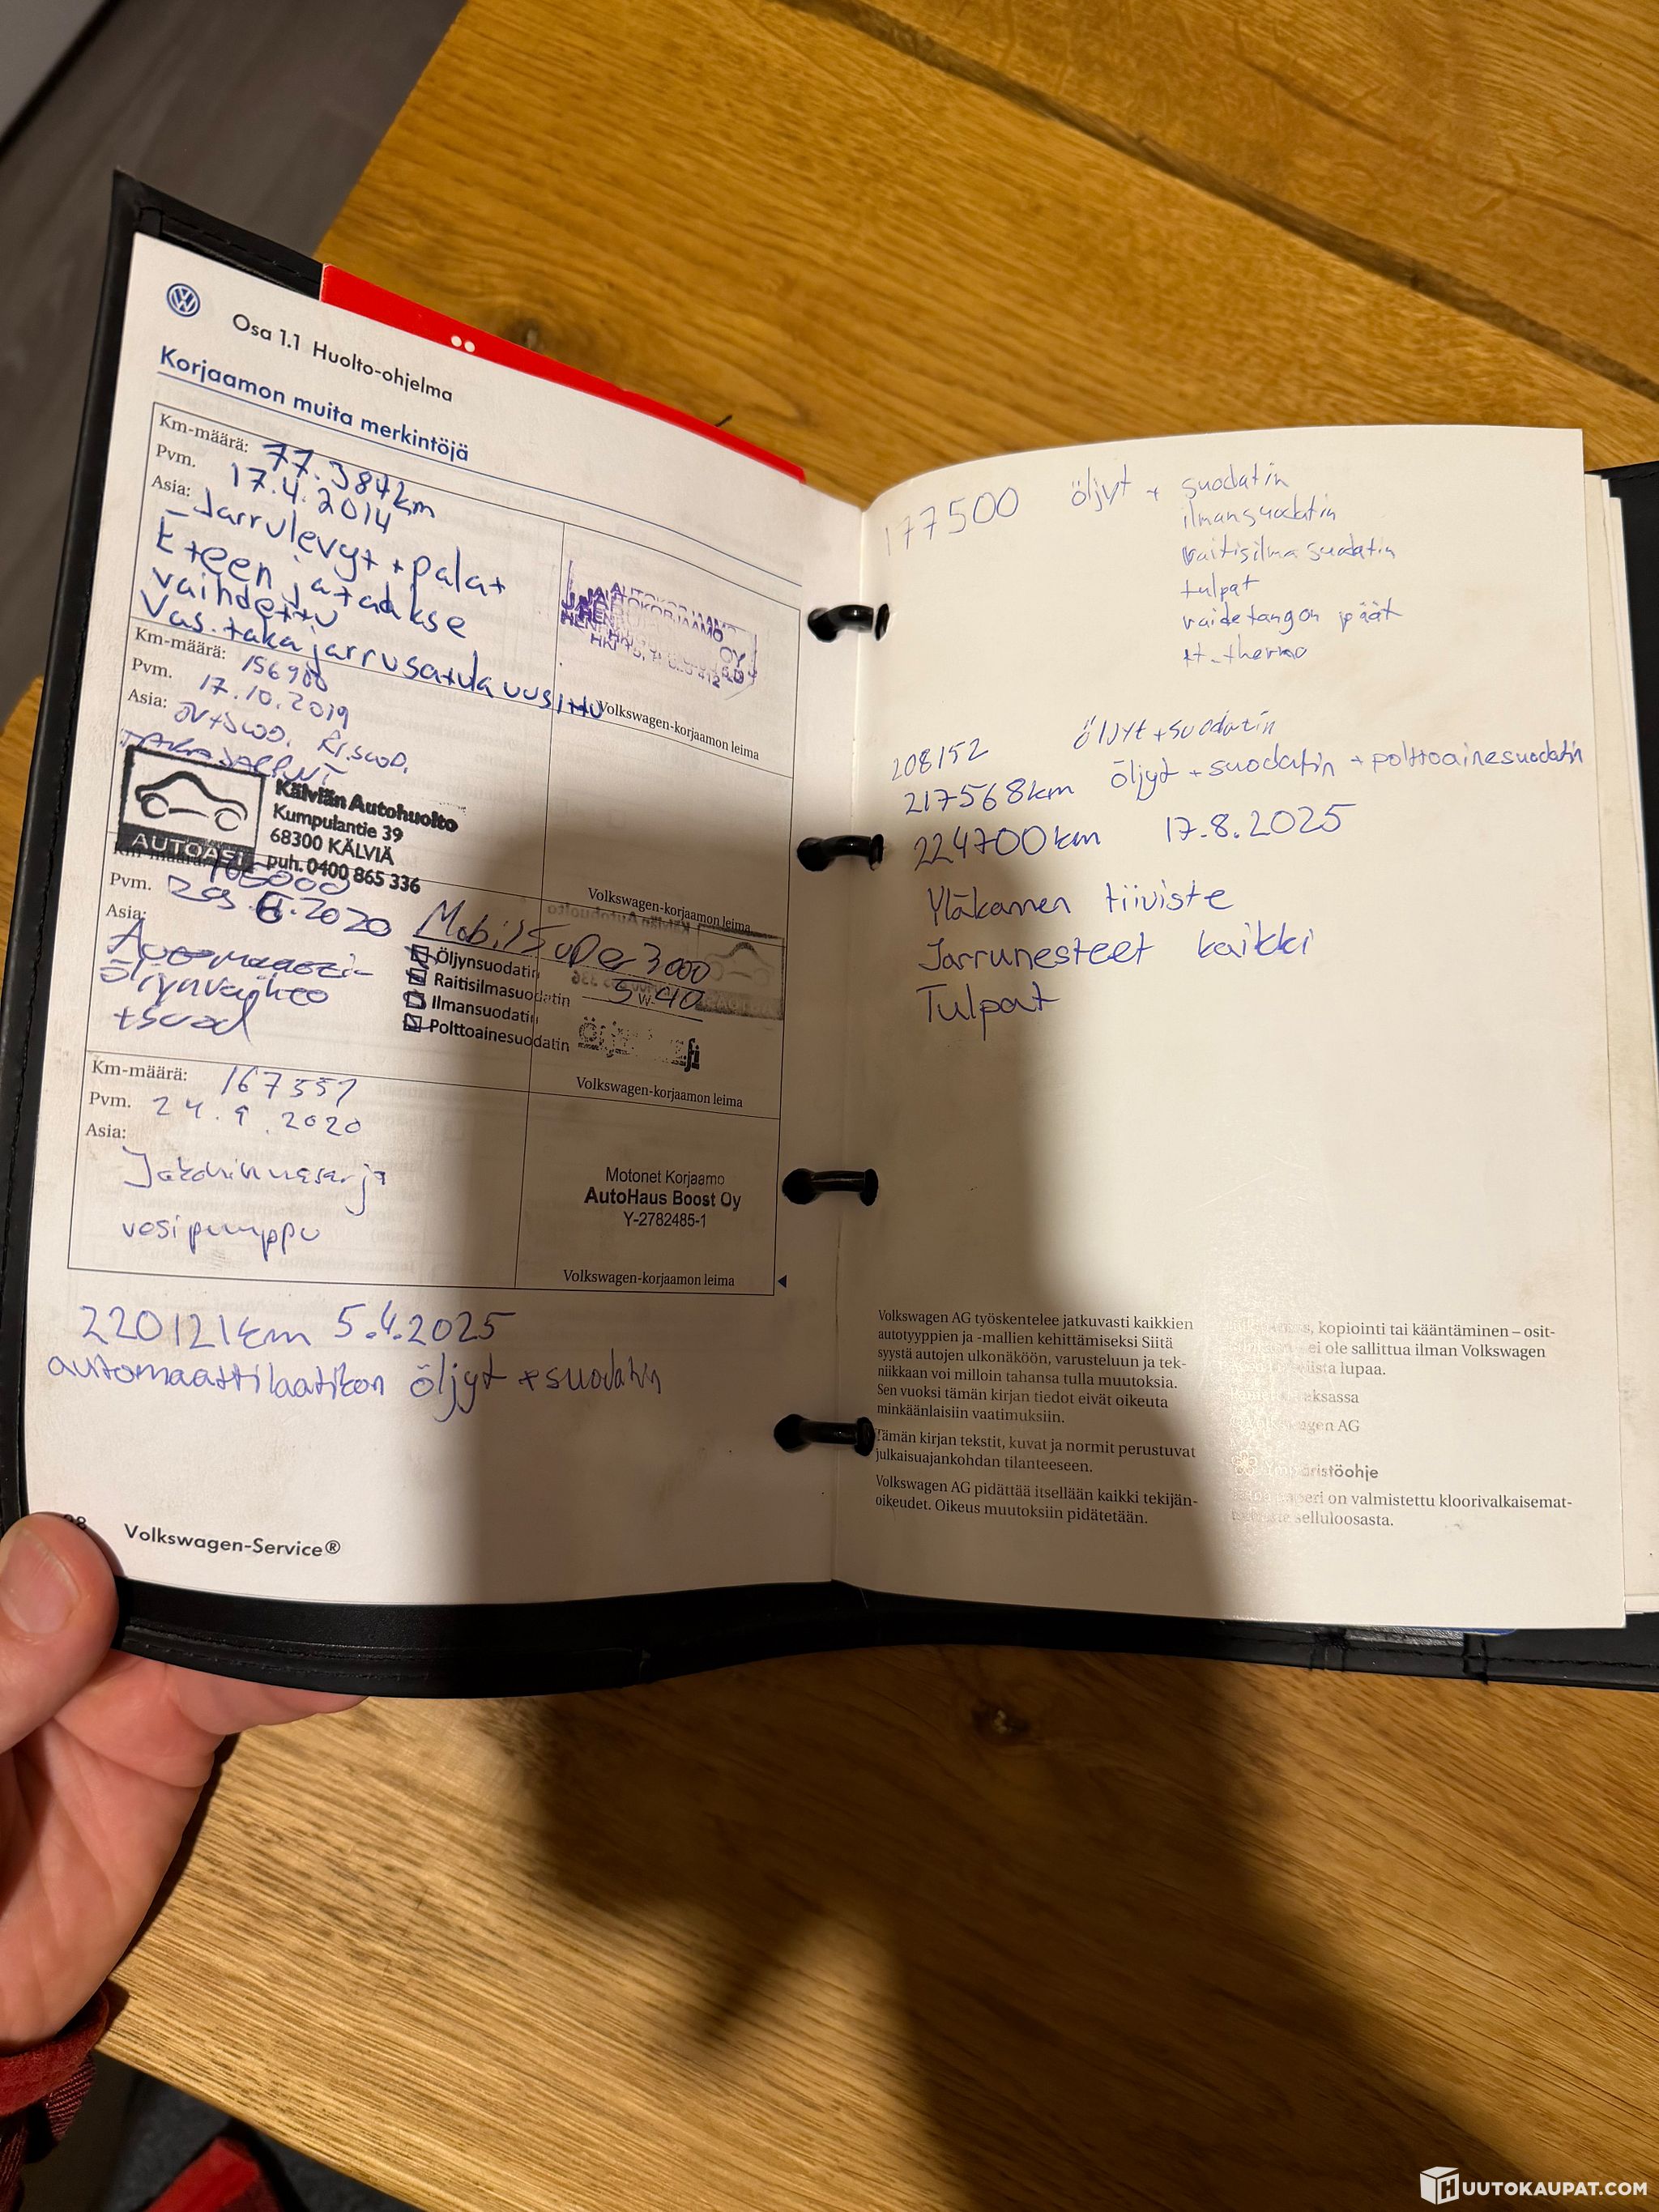 Osa 1.1 Huolto-ohjelma
Korjaamon muita merkintöjä
Km-määrä: 77.384km
Pvm. 17.4.2014
Asia: Jarrulevyt + palat
Eteen ja taakse
vaihdettu
Vas. takajarrusatula uusittu
AUTOKORJAAMO
OY
Volkswagen-korjaamon leima
Km-määrä: 156900
Pvm. 17.10.2019
Asia:
TAKAJARRUT
AUTOASI
Kälviän Autohuolto
Kumpulantie 39
68300 KÄLVIÄ
puh. 0400 865 336
Volkswagen-korjaamon leima
Km-määrä:
Pvm. .2020
Asia:
öljynvaihto
+suod
Mobil Super 3000
5W-40
Öljynsuodatin
Raitisilmasuodatin
Ilmansuodatin
Polttoainesuodatin
Volkswagen-korjaamon leima
Km-määrä: 167551
Pvm. 24.9.2020
Asia:
Jakohihnasarja
vesipumppu
Motonet Korjaamo
AutoHaus Boost Oy
Y-2782485-1
Volkswagen-korjaamon leima
220121km 5.4.2025
automaattilaatikon öljyt + suodatin
98
Volkswagen-Service®
177500 öljyt + suodatin
ilmansuodatin
raitisilmasuodatin
tulpat
raidetangon päät
thermo
208152 öljyt + suodatin
217568km öljyt + suodatin + polttoainesuodatin
224700km 17.8.2025
Yläkannen tiiviste
Jarrunesteet kaikki
Tulpat
Volkswagen AG työskentelee jatkuvasti kaikkien
autotyyppien ja -mallien kehittämiseksi Siitä
syystä autojen ulkonäköön, varusteluun ja tek-
niikkaan voi milloin tahansa tulla muutoksia.
Sen vuoksi tämän kirjan tiedot eivät oikeuta
minkäänlaisiin vaatimuksiin.
Tämän kirjan tekstit, kuvat ja normit perustuvat
julkaisuajankohdan tilanteeseen.
Volkswagen AG pidättää itsellään kaikki tekijän-
oikeudet. Oikeus muutoksiin pidätetään.
kopiointi tai kääntäminen – osit-
ei ole sallittua ilman Volkswagen
lupaa.
Volkswagen AG
Ympäristöohje
on valmistettu kloorivalkaisemat-
selluloosasta.
HUUTOKAUPAT.COM